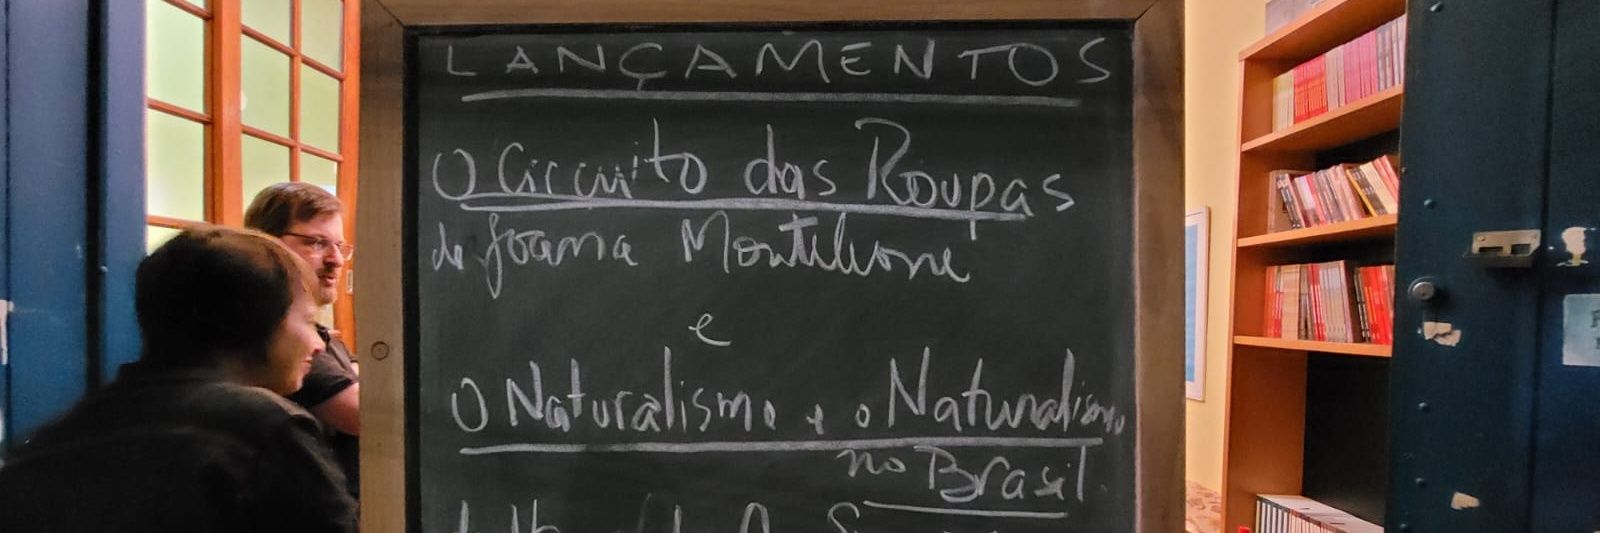 LANÇAMENTOS
O Circuito das Roupas
de Joana Monteleone
e
O Naturalismo e o Naturalismo
no Brasil